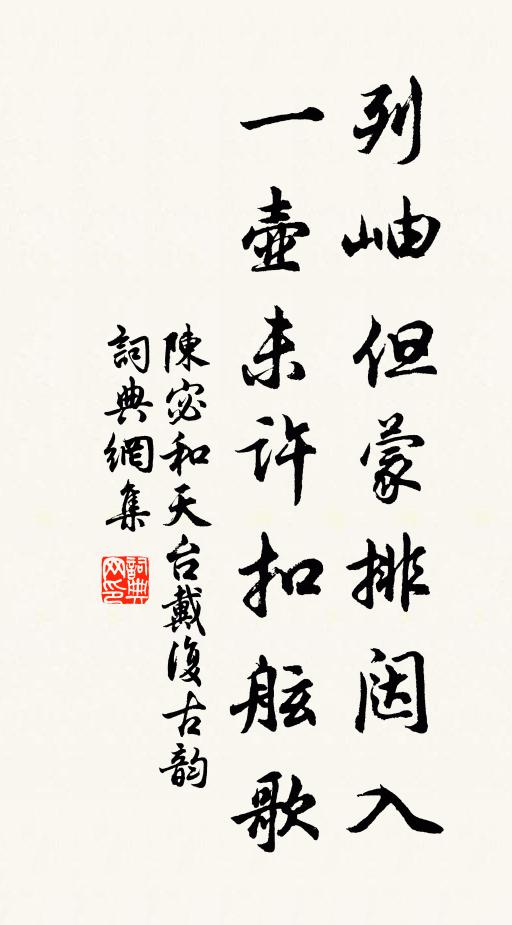 列岫但蒙排闼入
一壺未許扣舷歌
陳宓和天台戴復古韵
詞典網集
詞典网印